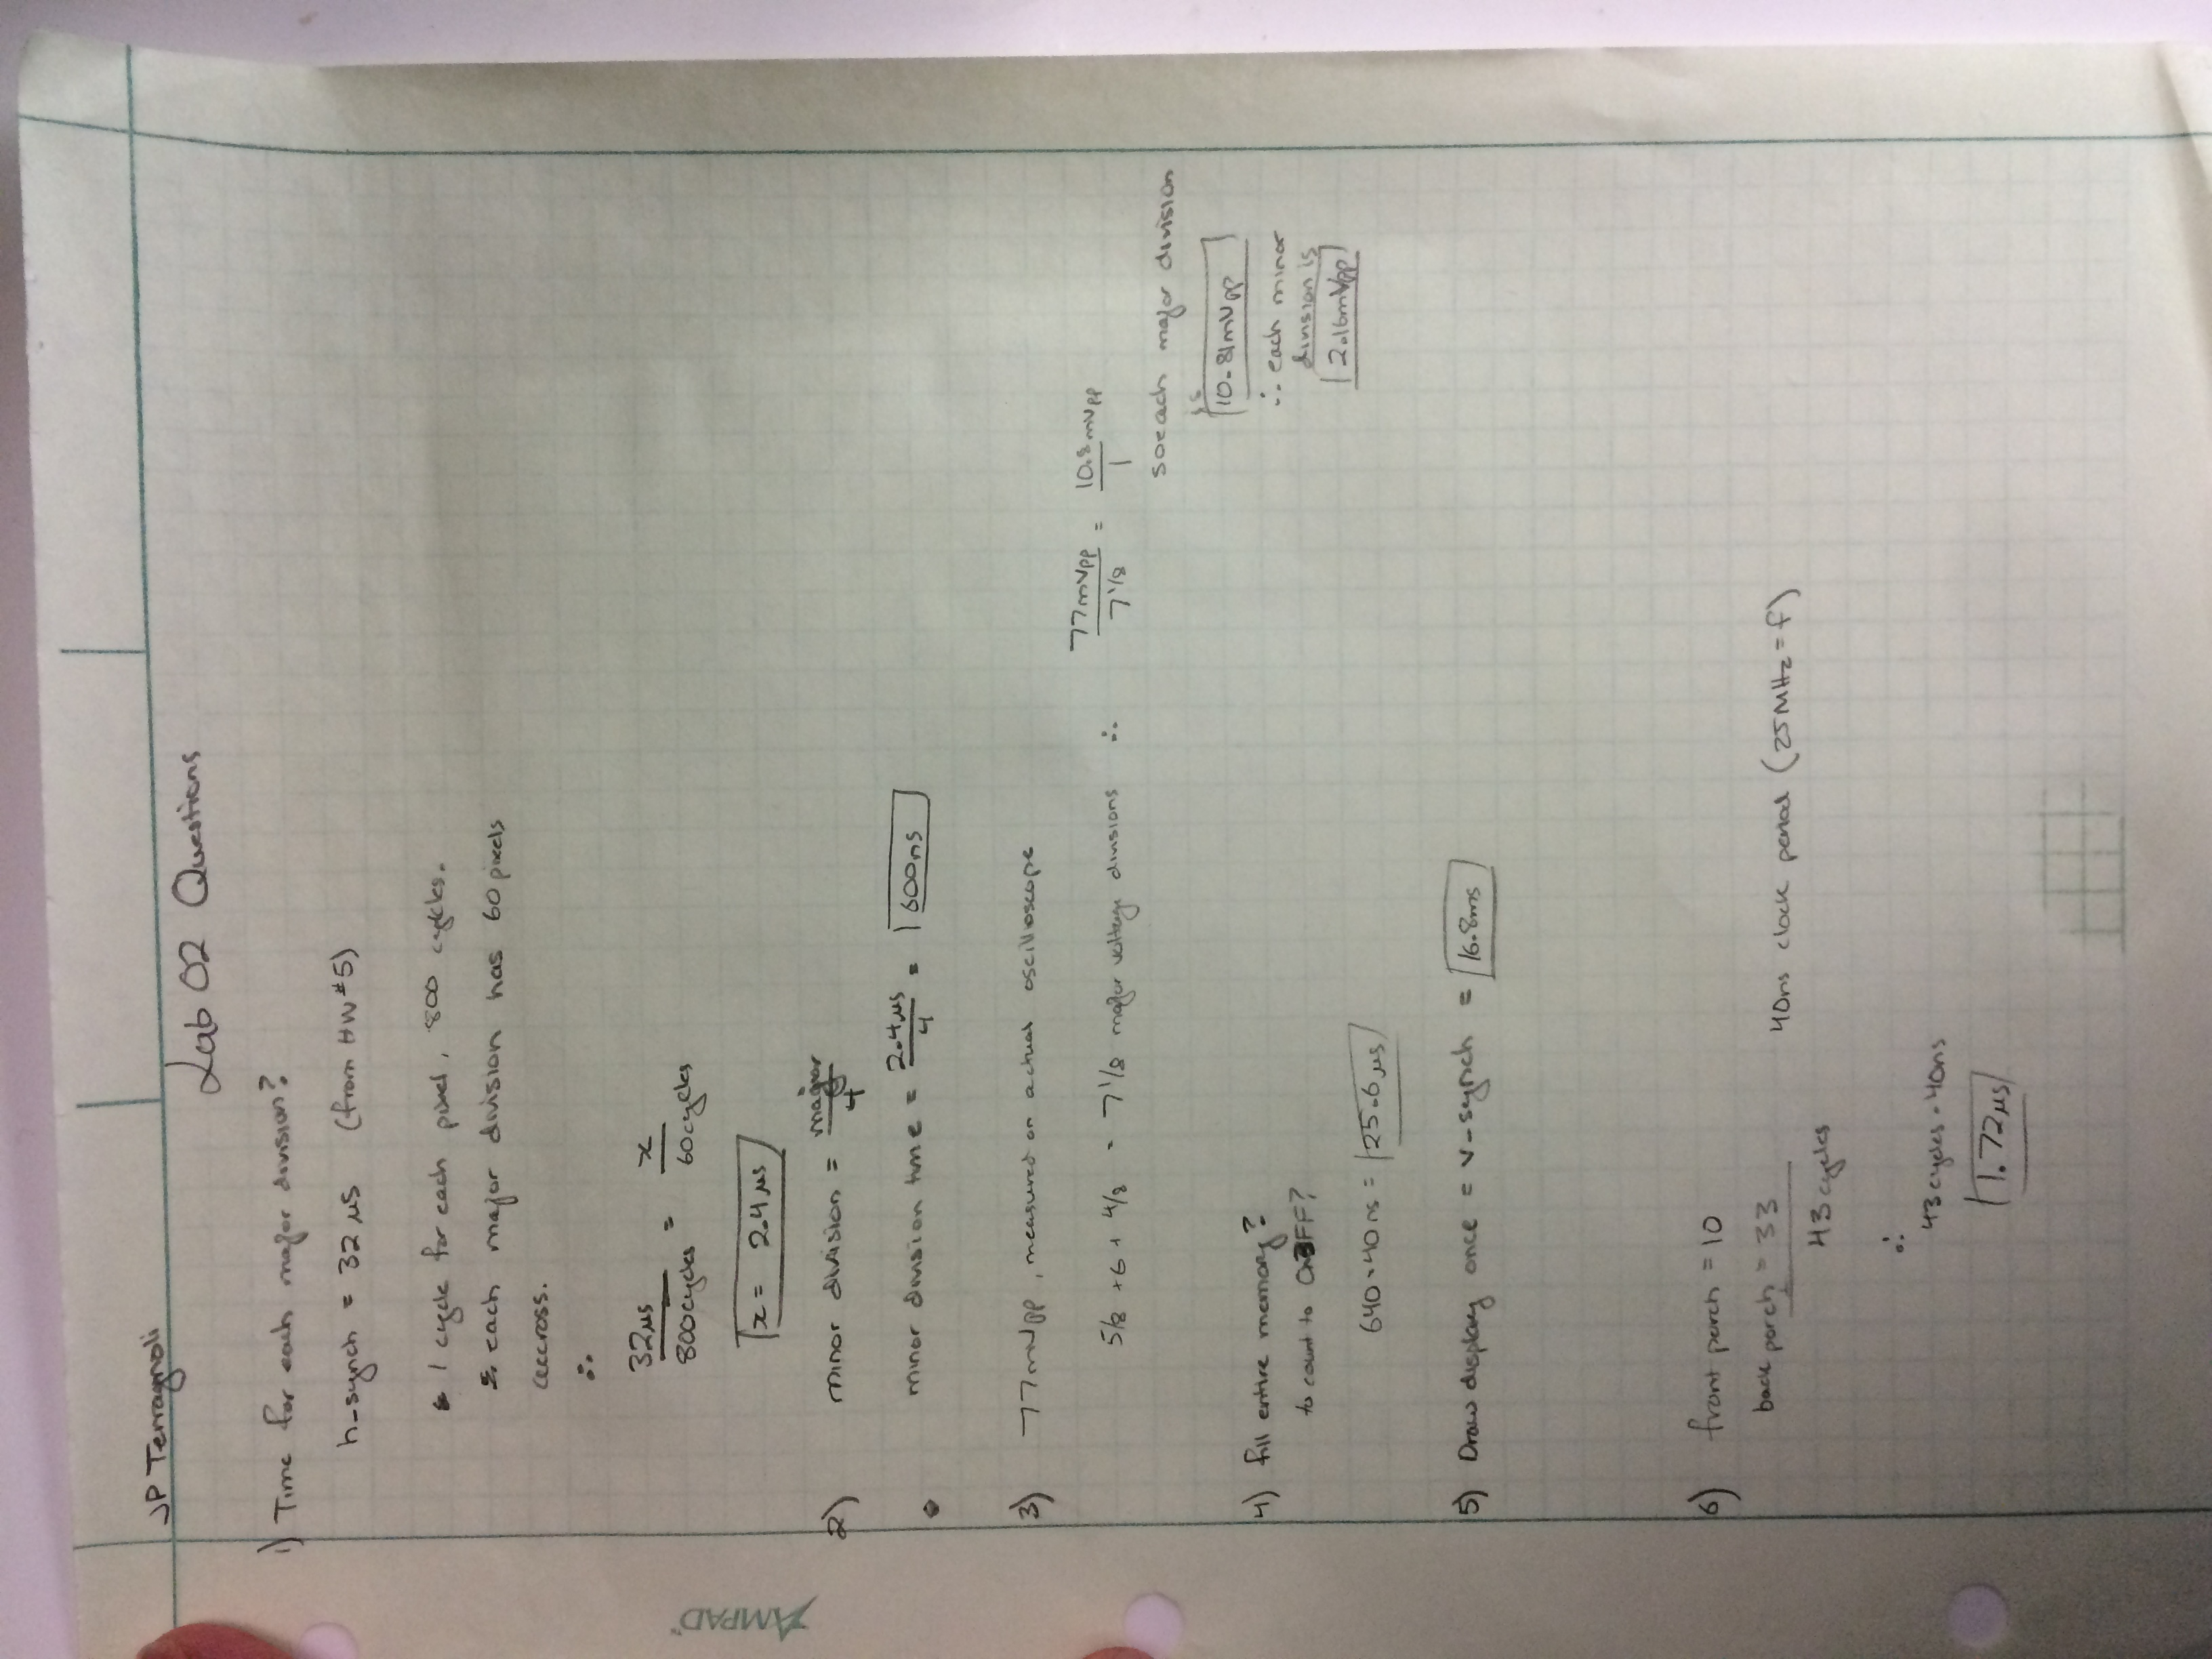 JP Terragnoli
Lab 02 Questions
1) Time for each major division?
h-synch = 32 µs (from HW #5)
1 cycle for each pixel, 800 cycles.
each major division has 60 pixels
accross.
∴
32µs / 800cycles = x / 60cycles
x = 2.4 µs
2) minor division = major / 4
minor division time = 2.4µs / 4 = 600ns
3) 77mVpp, measured on actual oscilloscope
5/8 + 6 + 4/8 = 7 1/8 major voltage divisions ∴ 77mVpp / 7 1/8 = 10.8mVpp / 1
so each major division
is
10.81mVpp
∴ each minor
division is
2.16mVpp
4) fill entire memory?
to count to 0x3FF?
640 · 40ns = 25.6 µs
5) Draw display once = v-synch = 16.8ms
6) front porch = 10
back porch = 33
43 cycles
40ns clock period (25MHz = f)
∴
43 cycles · 40ns
1.72 µs
AMPAD